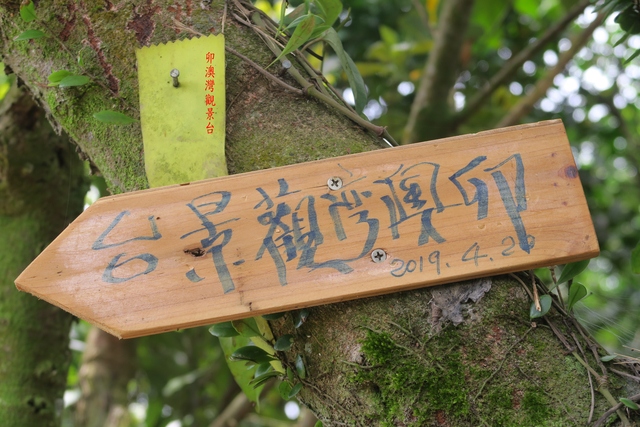 卯澳灣觀景台
卯澳湾觀景台
2019.4.26